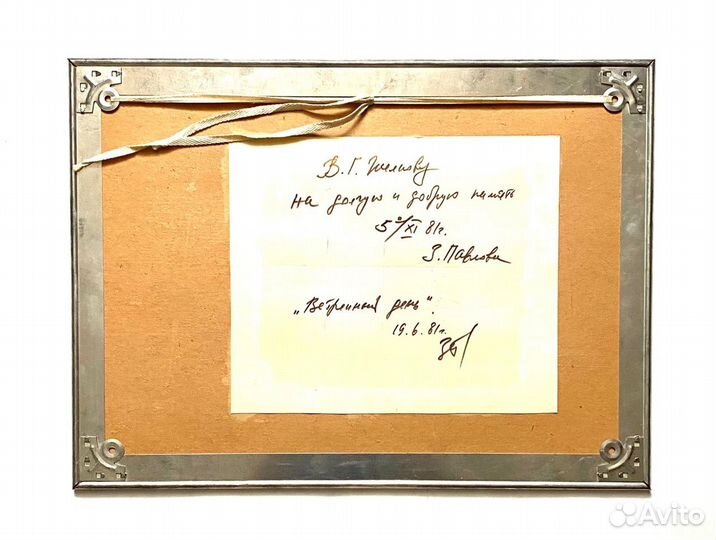 В. Г.
на долгую и добрую память
5/XI 81г.
З. Павлова
„Ветренный день".
19.6.81г.
Avito